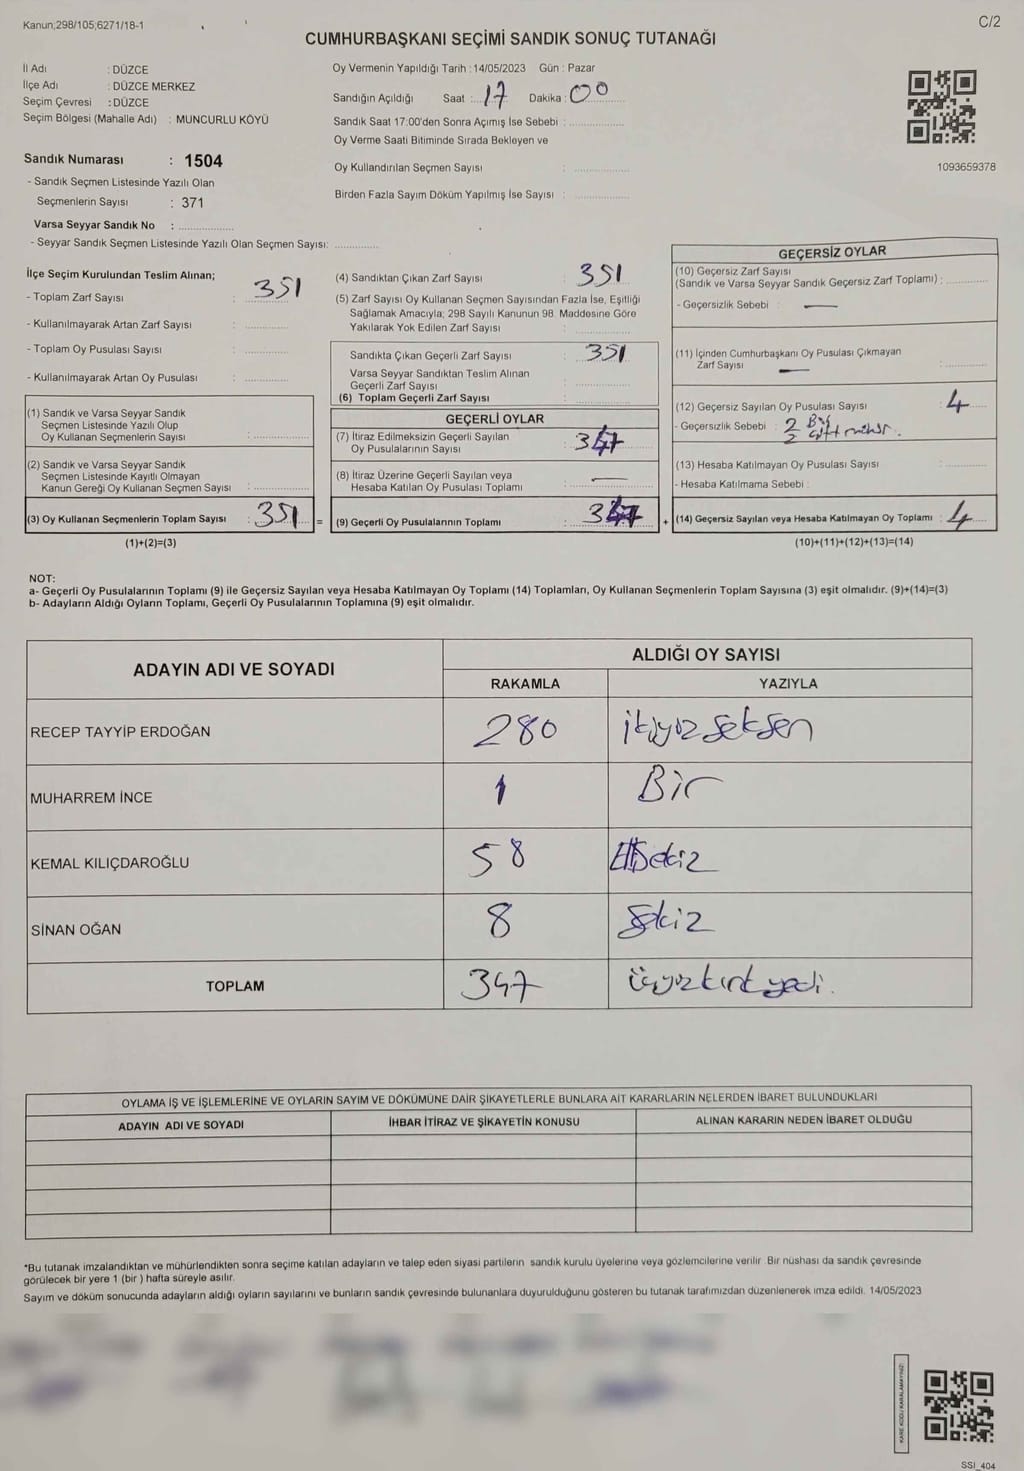 Kanun;298/105;6271/18-1
C/2
CUMHURBAŞKANI SEÇİMİ SANDIK SONUÇ TUTANAĞI
İl Adı : DÜZCE
İlçe Adı : DÜZCE MERKEZ
Seçim Çevresi : DÜZCE
Seçim Bölgesi (Mahalle Adı) : MUNCURLU KÖYÜ
Oy Vermenin Yapıldığı Tarih : 14/05/2023 Gün : Pazar
Sandığın Açıldığı Saat : 17 Dakika : 00
Sandık Saat 17:00'den Sonra Açımış İse Sebebi :
Oy Verme Saati Bitiminde Sırada Bekleyen ve
Oy Kullandırılan Seçmen Sayısı :
Birden Fazla Sayım Döküm Yapılmış İse Sayısı :
1093659378
Sandık Numarası : 1504
- Sandık Seçmen Listesinde Yazılı Olan
Seçmenlerin Sayısı : 371
Varsa Seyyar Sandık No :
- Seyyar Sandık Seçmen Listesinde Yazılı Olan Seçmen Sayısı:
İlçe Seçim Kurulundan Teslim Alınan;
- Toplam Zarf Sayısı : 351
- Kullanılmayarak Artan Zarf Sayısı :
- Toplam Oy Pusulası Sayısı :
- Kullanılmayarak Artan Oy Pusulası :
(1) Sandık ve Varsa Seyyar Sandık
Seçmen Listesinde Yazılı Olup
Oy Kullanan Seçmenlerin Sayısı :
(2) Sandık ve Varsa Seyyar Sandık
Seçmen Listesinde Kayıtlı Olmayan
Kanun Gereği Oy Kullanan Seçmen Sayısı :
(3) Oy Kullanan Seçmenlerin Toplam Sayısı : 351 =
(1)+(2)=(3)
(4) Sandıktan Çıkan Zarf Sayısı : 351
(5) Zarf Sayısı Oy Kullanan Seçmen Sayısından Fazla İse, Eşitliği
Sağlamak Amacıyla; 298 Sayılı Kanunun 98. Maddesine Göre
Yakılarak Yok Edilen Zarf Sayısı :
Sandıkta Çıkan Geçerli Zarf Sayısı : 351
Varsa Seyyar Sandıktan Teslim Alınan
Geçerli Zarf Sayısı :
(6) Toplam Geçerli Zarf Sayısı :
GEÇERLİ OYLAR
(7) İtiraz Edilmeksizin Geçerli Sayılan
Oy Pusulalarının Sayısı : 347
(8) İtiraz Üzerine Geçerli Sayılan veya
Hesaba Katılan Oy Pusulası Toplamı : —
(9) Geçerli Oy Pusulalarının Toplamı : 347 +
GEÇERSİZ OYLAR
(10) Geçersiz Zarf Sayısı
(Sandık ve Varsa Seyyar Sandık Geçersiz Zarf Toplamı) :
- Geçersizlik Sebebi : —
(11) İçinden Cumhurbaşkanı Oy Pusulası Çıkmayan
Zarf Sayısı — :
(12) Geçersiz Sayılan Oy Pusulası Sayısı : 4
- Geçersizlik Sebebi : 2 Bir
2 çift mühür.
(13) Hesaba Katılmayan Oy Pusulası Sayısı :
- Hesaba Katılmama Sebebi :
(14) Geçersiz Sayılan veya Hesaba Katılmayan Oy Toplamı : 4
(10)+(11)+(12)+(13)=(14)
NOT:
a- Geçerli Oy Pusulalarının Toplamı (9) ile Geçersiz Sayılan veya Hesaba Katılmayan Oy Toplamı (14) Toplamları, Oy Kullanan Seçmenlerin Toplam Sayısına (3) eşit olmalıdır. (9)+(14)=(3)
b- Adayların Aldığı Oyların Toplamı, Geçerli Oy Pusulalarının Toplamına (9) eşit olmalıdır.
ADAYIN ADI VE SOYADI
ALDIĞI OY SAYISI
RAKAMLA YAZIYLA
RECEP TAYYİP ERDOĞAN 280 ikiyüz seksen
MUHARREM İNCE 1 Bir
KEMAL KILIÇDAROĞLU 58 Ellisekiz
SİNAN OĞAN 8 Sekiz
TOPLAM 347 Üçyüzkırkyedi.
OYLAMA İŞ VE İŞLEMLERİNE VE OYLARIN SAYIM VE DÖKÜMÜNE DAİR ŞİKAYETLERLE BUNLARA AİT KARARLARIN NELERDEN İBARET BULUNDUKLARI
ADAYIN ADI VE SOYADI İHBAR İTİRAZ VE ŞİKAYETİN KONUSU ALINAN KARARIN NEDEN İBARET OLDUĞU
*Bu tutanak imzalandıktan ve mühürlendikten sonra seçime katılan adayların ve talep eden siyasi partilerin sandık kurulu üyelerine veya gözlemcilerine verilir. Bir nüshası da sandık çevresinde
görülecek bir yere 1 (bir ) hafta süreyle asılır.
Sayım ve döküm sonucunda adayların aldığı oyların sayılarını ve bunların sandık çevresinde bulunanlara duyurulduğunu gösteren bu tutanak tarafımızdan düzenlenerek imza edildi. 14/05/2023
KARE KODU KARALAMAYINIZ!
SSI_404